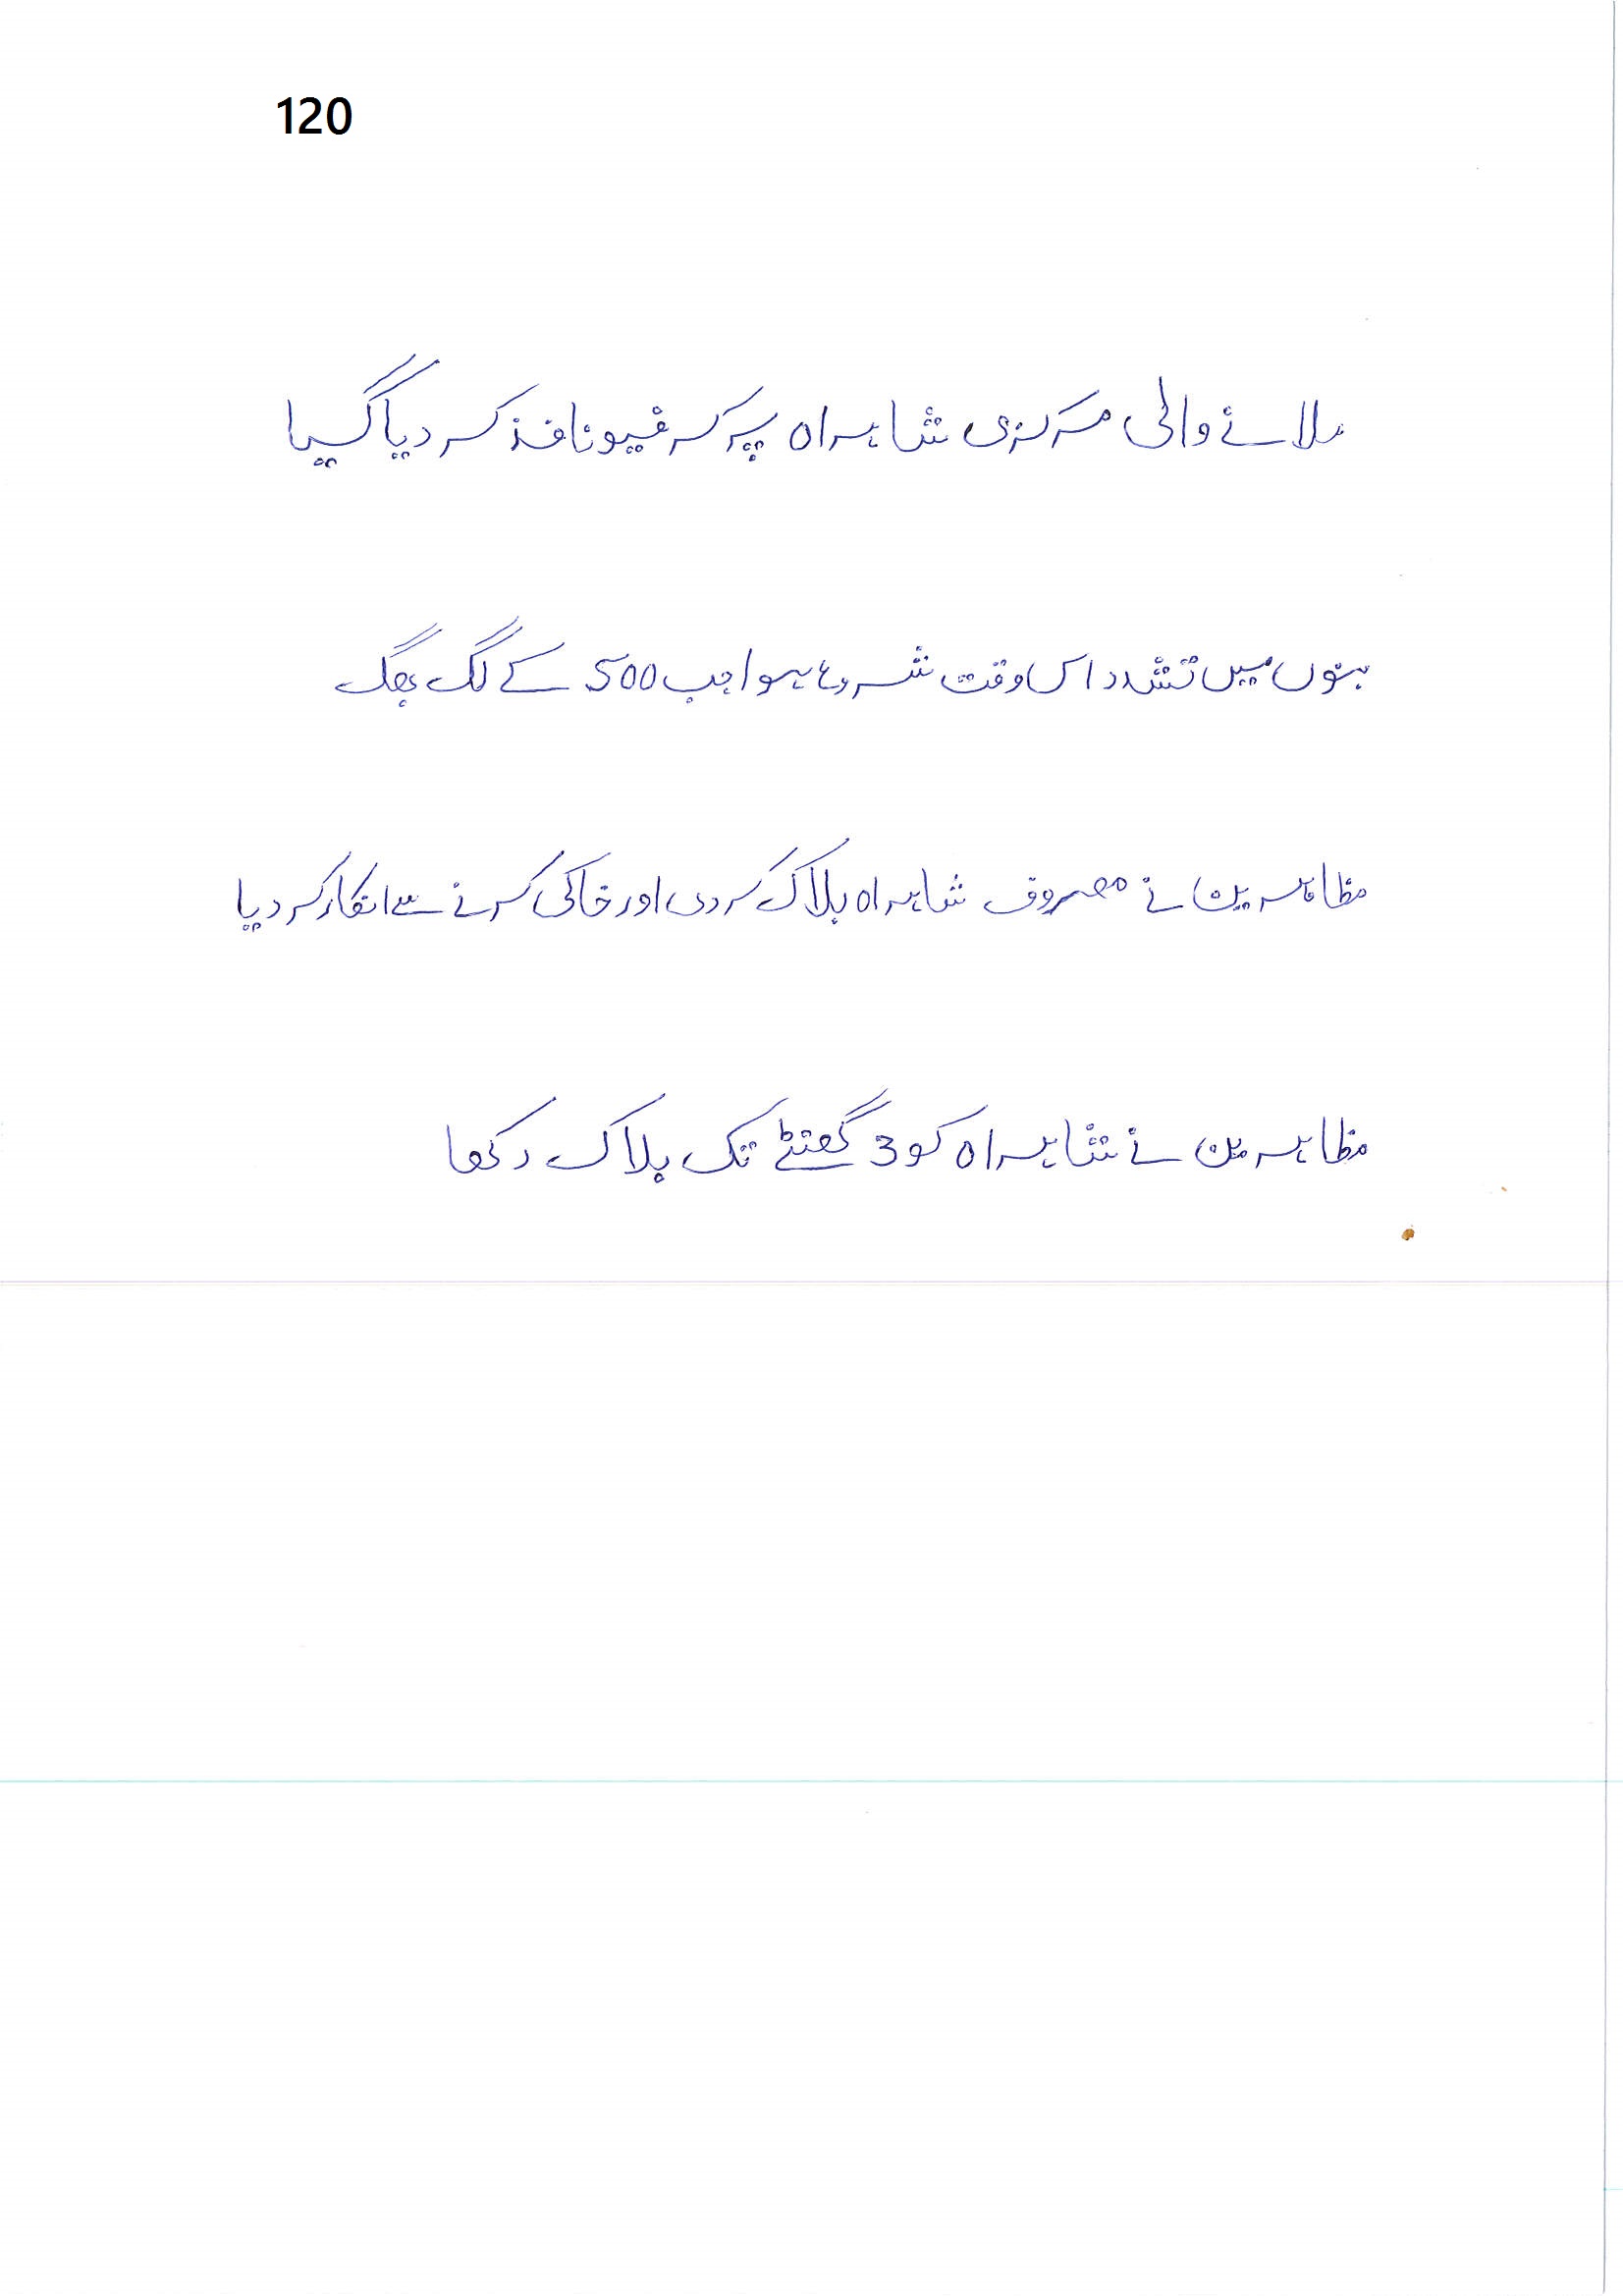 120
ملانے والی مرکزی شاہراہ پر کرفیو نافذ کر دیا گیا
بنوں میں تشدد اس وقت شروع ہوا جب 500 کے لگ بھگ
مظاہرین نے مصروف شاہراہ بلاک کر دی اور خالی کرنے سے انکار کر دیا
مظاہرین نے شاہراہ کو 3 گھنٹے تک بلاک رکھا